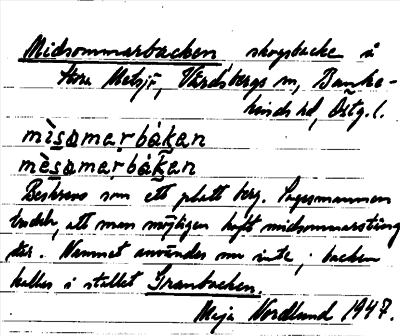 Midsommarbacken, skogsbacke å
Stora Metsjö, Vårdsbergs sn, Banke-
kinds hd, Östg. l.
mìsamaṛbàkan
mèsamaṛbàkan
Beskrevs som ett platt berg. Sagesmannen
trodde, att man möjligen haft midsommarstång
där. Namnet användes nu inte, backen
kallas i stället Granbacken.
Maja Nordlund 1947.